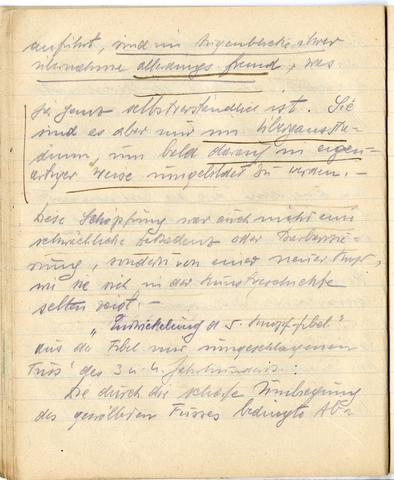 anführt, sind im Augenblicke ihrer
Übernahme allerdings fremd, was
ja ganz selbstverständlich ist. Sie
sind es aber nur im Übergangssta-
dium, um bald darauf in eigen-
artiger Weise umgebildet zu werden. –
Diese Schöpfung war auch nicht eine
schwächliche Dekadenz oder Barbarisie-
rung, sondern von einer neuen Kraft,
wie sie sich in der Kunstgeschichte
selten zeigt. –
„Entwickelung d. S. Knopffibel"
aus der Fibel mit umgeschlagenem
Fuss des 3. u. 4. Jahrhunderts:
Die durch die scharfe Umbiegung
des gewölbten Fusses bedingte